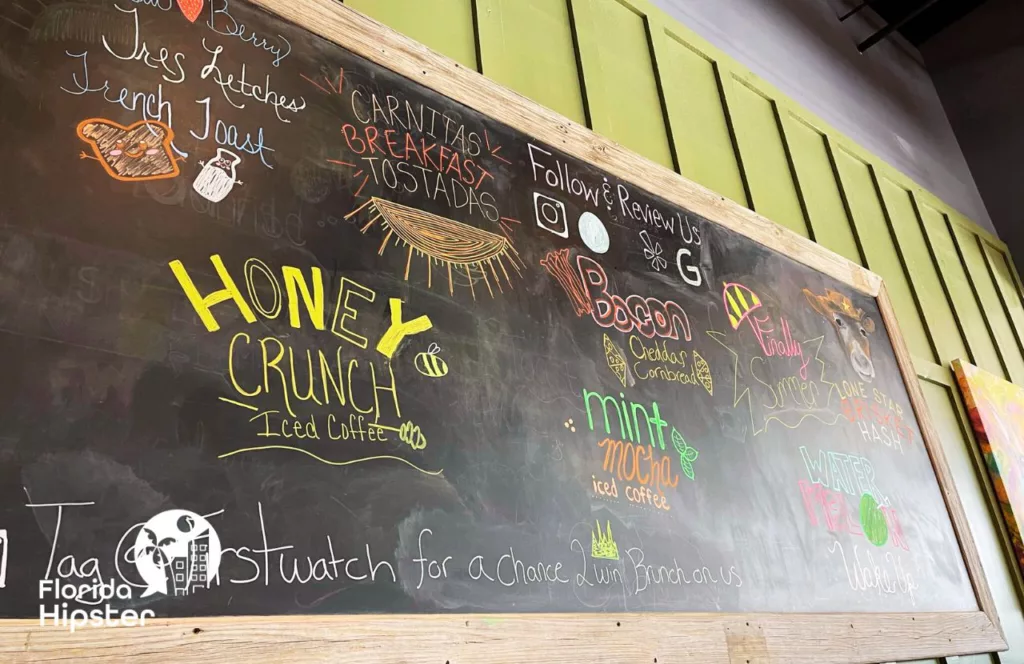 Berry
Tres Letches
French Toast
CARNITAS
BREAKFAST
TOSTADAS
Follow & Review Us
G
HONEY
CRUNCH
Iced Coffee
Bacon
Cheddar
Cornbread
mint
mocha
iced coffee
Finally
Summer
LONE STAR
BRISKET
HASH
WATER
MELON
Wake Up
Tag @firstwatch for a chance 2 win Brunch on us
Florida
Hipster